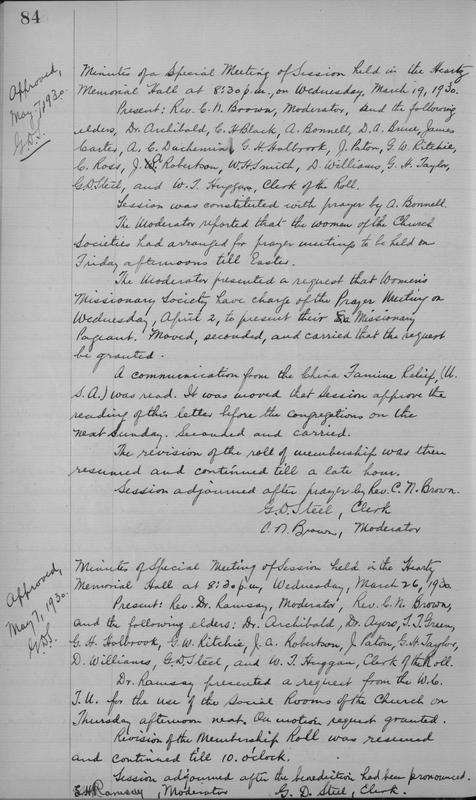 84
Approved,
May 7, 1930.
G.D.S.
Minutes of a Special Meeting of Session held in the Heartz
Memorial Hall at 8:30 p.m., on Wednesday, March 19, 1930.
Present: Rev. C. N. Brown, Moderator, and the following
elders, Dr. Archibald, C. H. Black, A. Bonnell, D. A. Bruce, James
Carter, A. C. Duchemin, G. H. Holbrook, J. Paton, G. W. Ritchie,
C. Ross, J. A. Robertson, W. H. Smith, D. Williams, G. H. Taylor,
G. D. Steel, and W. T. Huggan, Clerk of the Roll.
Session was constituted with prayer by A. Bonnell.
The Moderator reported that the women of the Church
Societies had arranged for prayer meetings to be held on
Friday afternoons till Easter.
The Moderator presented a request that Women's
Missionary Society have charge of the Prayer Meeting on
Wednesday, April 2, to present their Missionary
Pageant. Moved, seconded, and carried that the request
be granted.
A communication from the China Famine Relief, (U.
S. A.) was read. It was moved that Session approve the
reading of this letter before the congregations on the
next Sunday. Seconded and carried.
The revision of the roll of membership was then
resumed and continued till a late hour.
Session adjourned after prayer by Rev. C. N. Brown.
G. D. Steel, Clerk
C. N. Brown, Moderator
Approved,
May 7, 1930.
G.D.S.
Minutes of Special Meeting of Session held in the Heartz
Memorial Hall at 8:30 p.m., Wednesday, March 26, 1930.
Present: Rev. Dr. Ramsay, Moderator, Rev. C. N. Brown,
and the following elders: Dr. Archibald, Dr. Ayers, T. T. Green,
G. H. Holbrook, G. W. Ritchie, J. A. Robertson, J. Paton, G. H. Taylor,
D. Williams, G. D. Steel, and W. T. Huggan, Clerk of the Roll.
Dr. Ramsay presented a request from the W. C.
T. U. for the use of the Social Rooms of the Church on
Thursday afternoon next. On motion request granted.
Revision of the Membership Roll was resumed
and continued till 10. o'clock.
Session adjourned after the benediction had been pronounced.
E H Ramsay, Moderator G. D. Steel, Clerk.